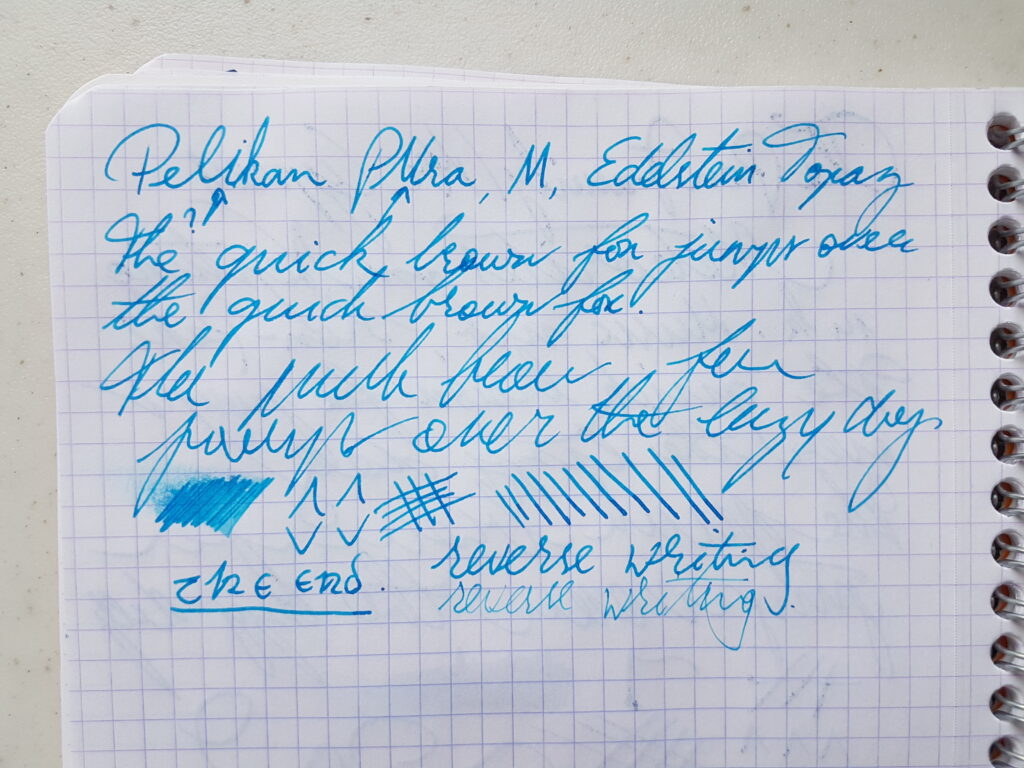 Pelikan Pura, M, Edelstein Topaz
?
The quick brown fox jumps over
the quick brown fox.
The quick brown fox
jumps over the lazy dog
reverse writing
the end.
reverse writing.